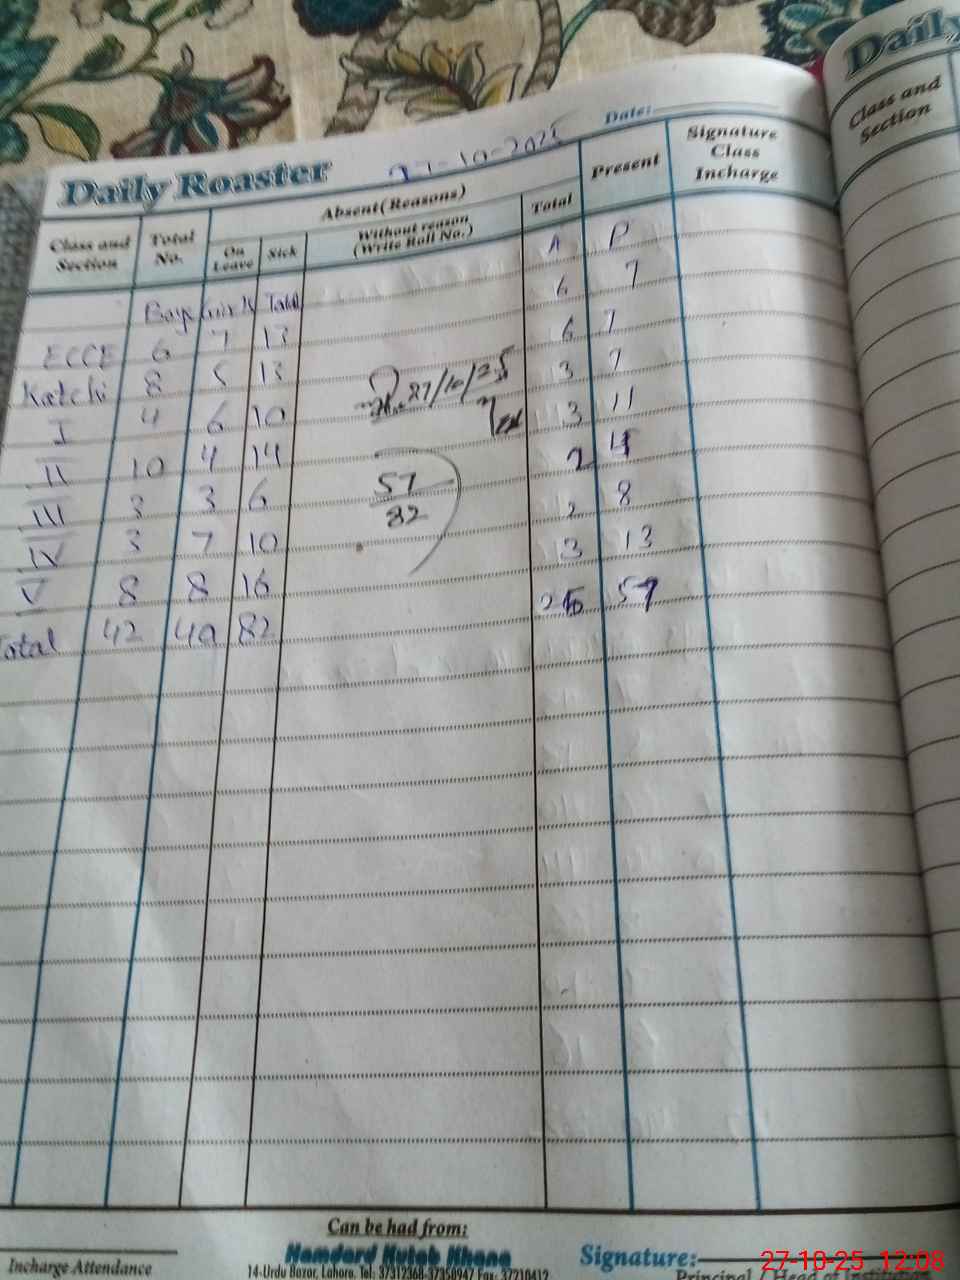 Daily
Class and
Section
Date:
Daily Roaster 27-10-2025
Class and Section | Total No. | Absent (Reasons) | Total | Present | Signature Class Incharge
On Leave | Sick | Without reason (Write Roll No.)
Boys Girls Total A P
ECCE 6 7 13 6 7
Katchi 8 5 13 6 7
I 4 6 10 3 7
II 10 4 14 3 11
III 3 3 6 2 4
IV 3 7 10 2 8
V 8 8 16 3 13
Total 42 40 82 25 57
27/10/25
57
82
Can be had from:
Hamdard Kutab Khana
14-Urdu Bazar, Lahore. Tel: 37312368-37358947 Fax: 37210412
Incharge Attendance
Signature:
Principal / Head of
27-10-25 12:08